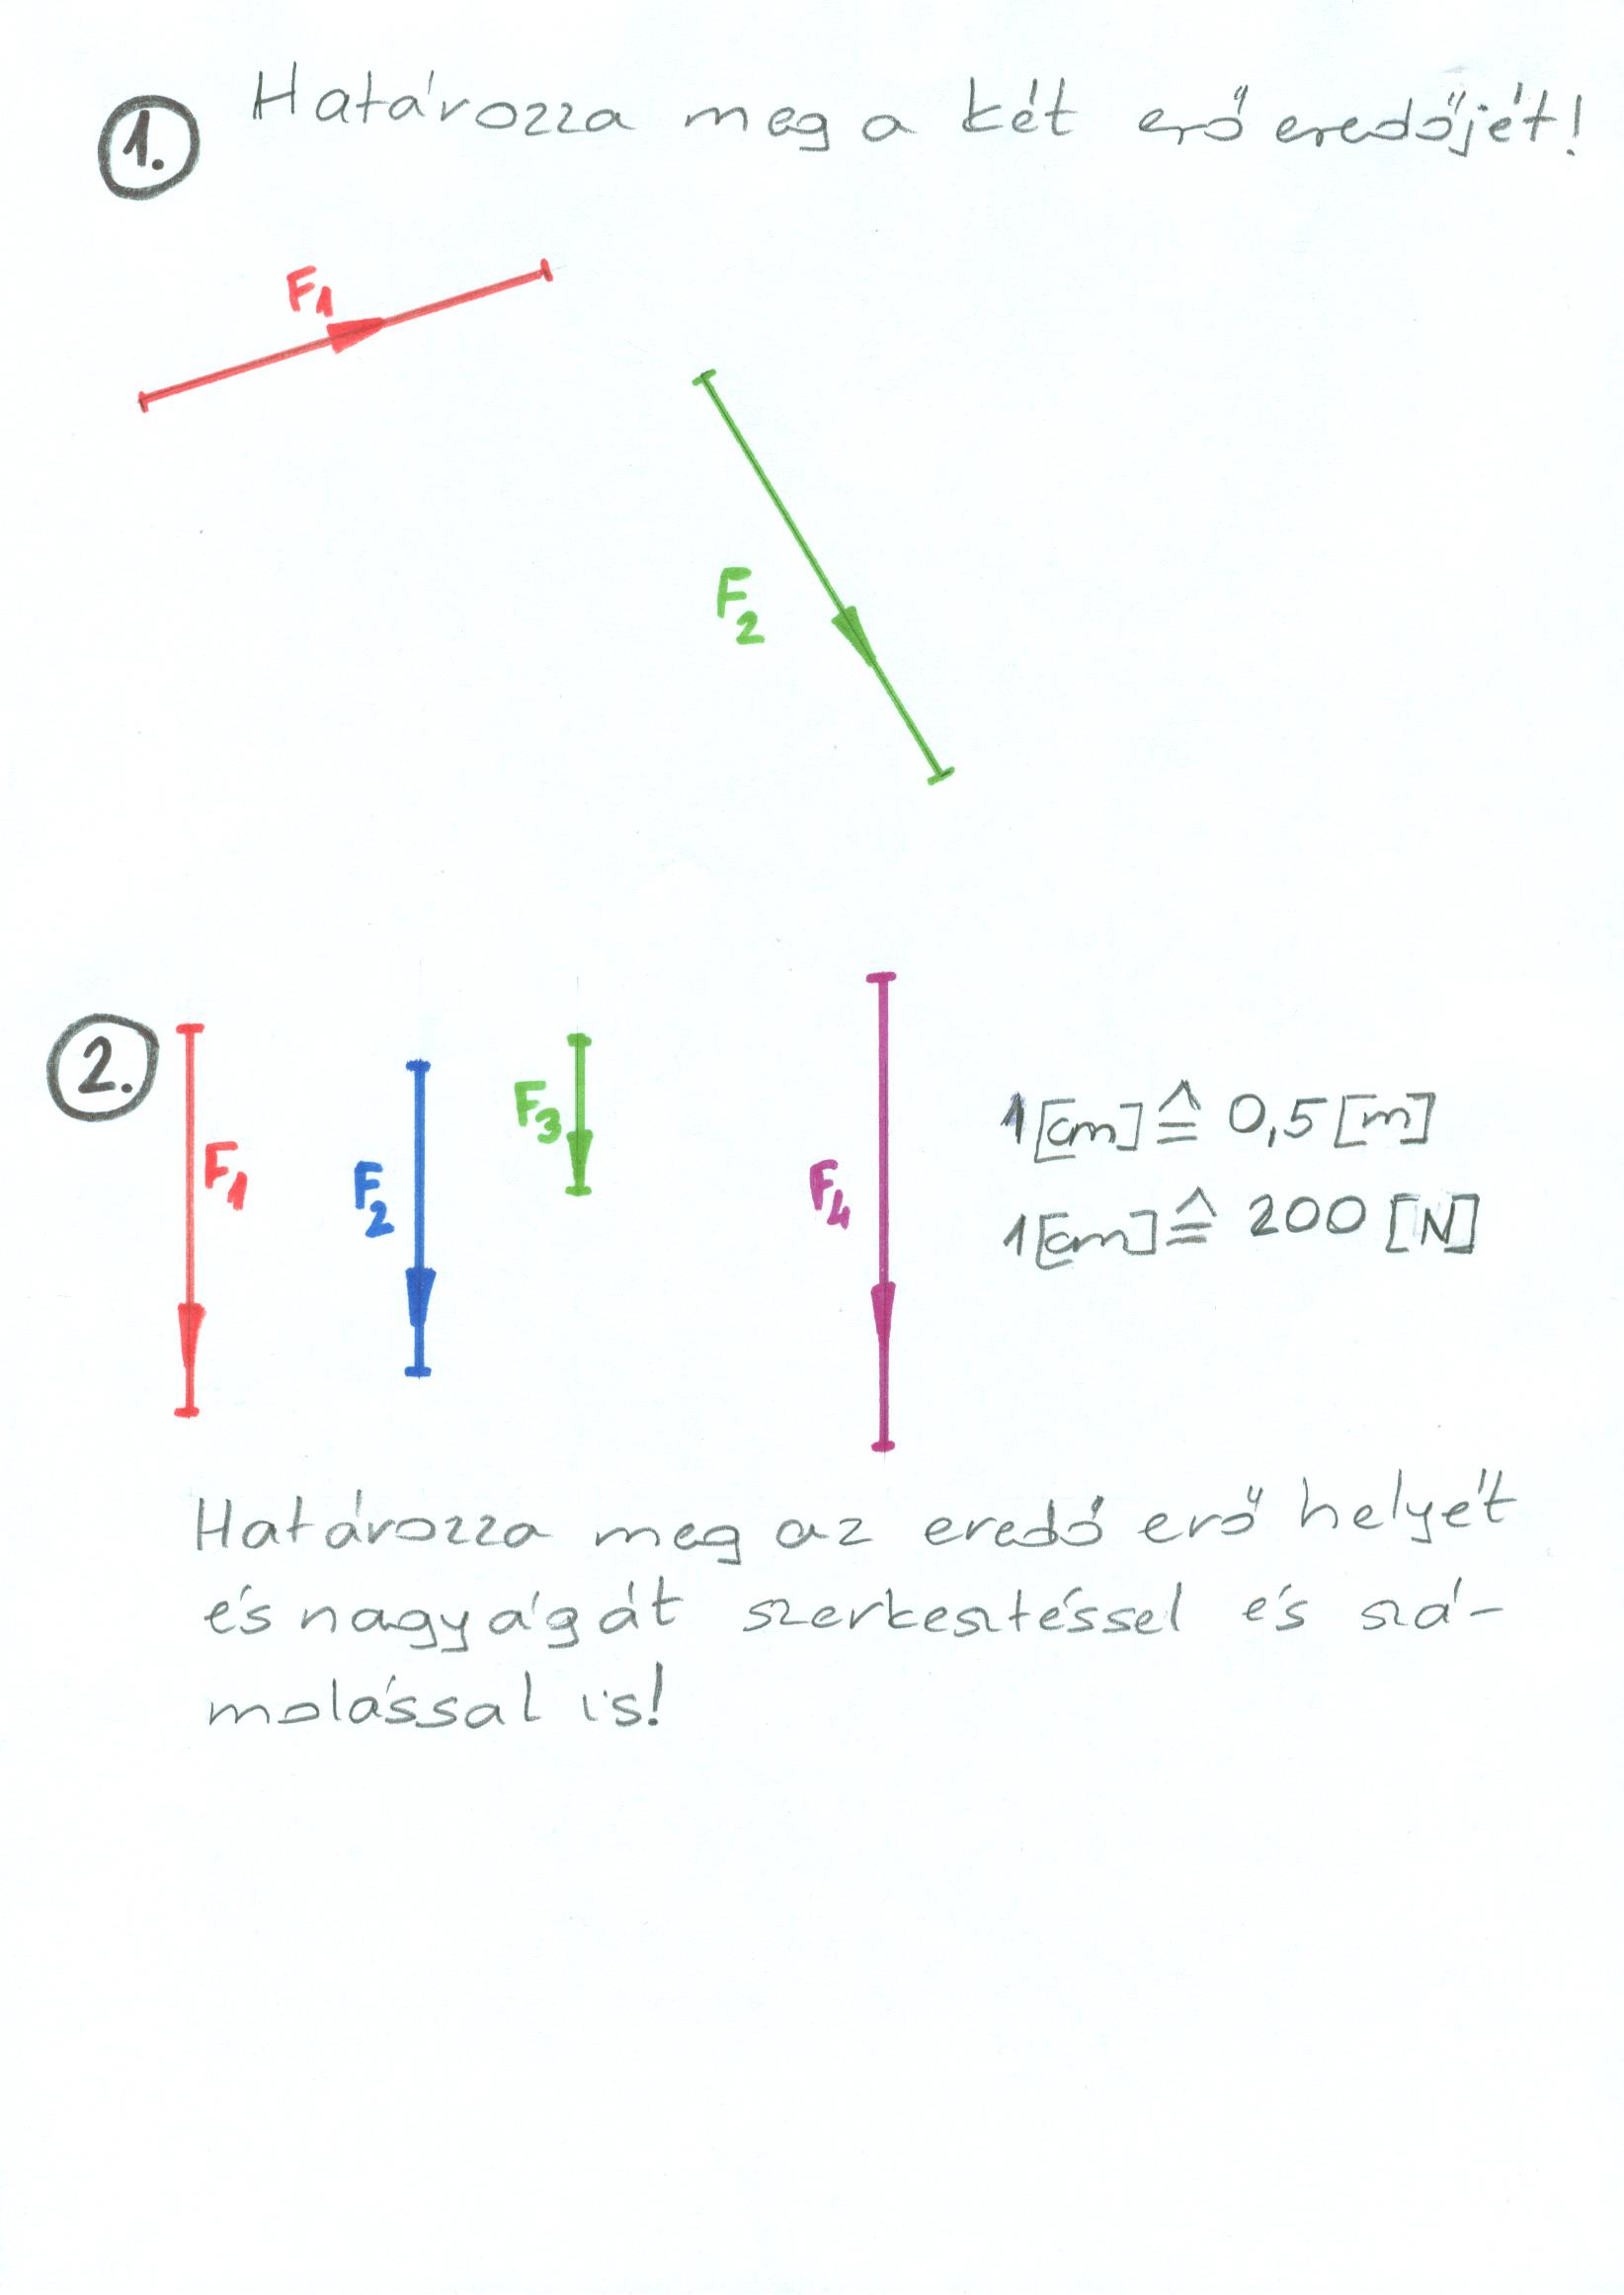 1. Határozza meg a két erő eredőjét!
F1
F2
2.
F1
F2
F3
F4
1[cm]≙ 0,5[m]
1[cm]≙ 200 [N]
Határozza meg az eredő erő helyét
és nagyágát szerkesztéssel és szá-
molással is!